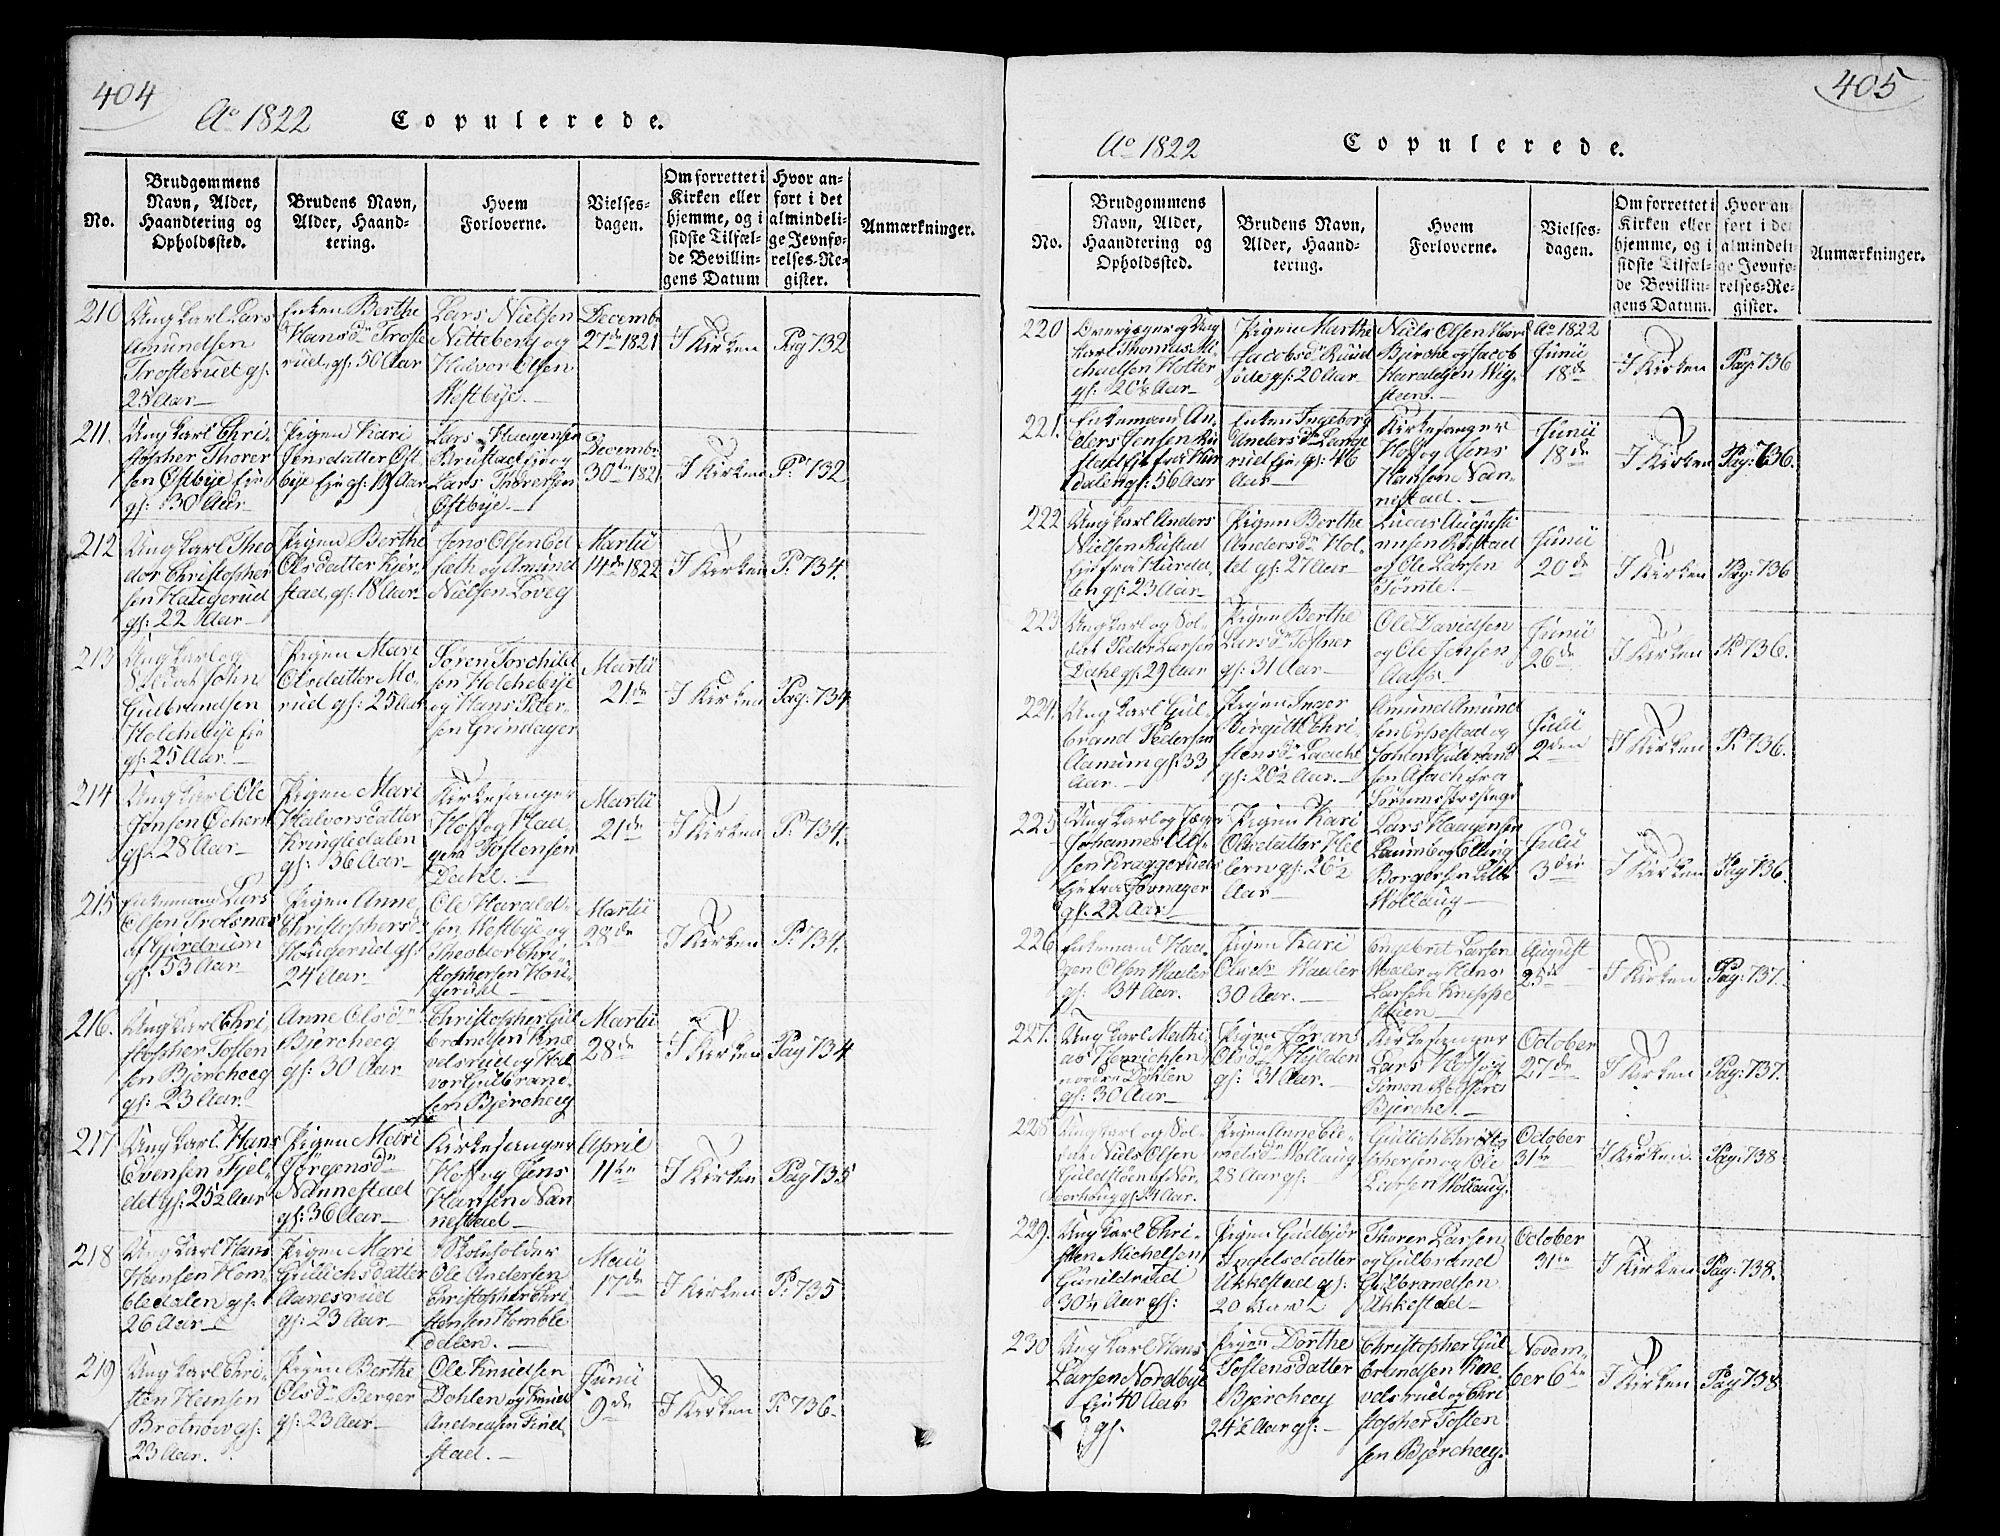 404
Ao 1822 Copulerede.
No.
Brudgommens
Navn, Alder,
Haandtering og
Opholdssted.
Brudens Navn,
Alder, Haand-
tering.
Hvem
Forloverne.
Vielses-
dagen.
Om forrettet i
Kirken eller
hjemme, og i
sidste Tilfæl-
de Bevillin-
gens Datum
Hvor an-
ført i det
almindeli-
ge Jevnfø-
relses-Re-
gister.
Anmærkninger.
210
Ung Karl Lars
Amundsen
Trosterud gs:
25 Aar
Enken Berthe
Hansdr Troste
rud, gs: 50 Aar
Lars Nielsen
Nitteberg og
Halvor Olsen
Westbye.
Decembr
27de 1821
I Kirken
Pag 132
211.
Ung Karl Chri-
stopher Thorer
sen Østbye Eie
gs: 30 Aar
Pigen Kari
Jensdatter Øst
bye Eie gs: 19 Aar
Lars Haagensen
Brustad Eie og
Lars Thorersen
Østbye.
Decembr
30te 1821
I Kirken
P: 132
212
Ung Karl Theo
dor Christopher
sen Haugerud
gs: 22 Aar
Pigen Berthe
Olsdatter Kjer-
stad, gs: 18 Aar
Jens Olsen
og Amund
Nielsen Løveg
Martii
14de 1822
I Kirken
P: 734.
213
Ung Karl og
Soldat John
Gulbrandsen
Holchebye Eie
gs: 25 Aar
Pigen Mari
Olsdatter Mo-
rud gs: 25 Aar
Søren Torchild
sen Holchebye
og Hans Peter-
sen Grindager
Martii
21de
I Kirken
Pag: 734
214
Ung Karl Ole
Jonsen Ochern
gs: 28 Aar
Pigen Mari
Halvorsdatter
Kringledalen
gs: 36 Aar
Kirkesanger
Hoff og Haa
gen Tostensen
Dahl.
Martii
21de
I Kirken
P: 734.
215
Enkemand Lars
Olsen Trolsnæs
af Gjerdrum
gs: 53 Aar
Pigen Anne
Christophersdr
Hougerud gs:
24 Aar
Ole Harald-
sen Westbye og
Theodor Chri-
stophersen Hou-
gerud
Martii
28de
I Kirken
P: 734.
216.
Ung Karl Chri
stopher Tosten
sen Bjercheeg
gs: 23 Aar
Anne Olsdr
Bjercheeg
gs: 30 Aar
Christopher Gul
brandsen Knæ
velsrud og Hal
vor Gulbrand-
sen Bjercheeg
Martii
28de
I Kirken
Pag 734
217
Ung Karl Hans
Evensen Fjel-
det gs: 25½ Aar
Pigen Mari
Jørgensdr
Nannestad
gs: 36 Aar
Kirkesanger
Hoff og Jens
Hansen Nan
nestad
April
11te
I Kirken
Pag 735
218
Ung Karl Hans
Hansen Hom-
bledalen gs:
26 Aar
Pigen Mari
Gulichsdatter
Aanesrud
gs: 23 Aar
Skoleholder
Ole Andersen
Christopher Chri
stensen Homble
dalen.
Maii
17de
I Kirken
P: 735
219
Ung Karl Chri-
sten Hansen
Brotnow gs:
23 Aar.
Pigen Berthe
Olsdr Berger
gs: 23 Aar
Ole Knudsen
Dohlen og Knud
Andreasen Finst
stad.
Junii
9de
I Kirken
P: 736.
405
Ao 1822 Copulerede.
No.
Brudgommens
Navn, Alder,
Haandtering og
Opholdssted.
Brudens Navn,
Alder, Haand-
tering.
Hvem
Forloverne.
Vielses-
dagen.
Om forrettet i
Kirken eller
hjemme, og i
sidste Tilfæl-
de Bevillin-
gens Datum.
Hvor an-
ført i det
almindeli-
ge Jevnfø-
relses-Re-
gister.
Anmærkninger.
220
Overjæger og Ung
Karl Thomas Mi-
chaelsen Holter
gs: Aar
Pigen Marthe
Jacobsdr Ruud
øde gs: 20 Aar
Niels Olsen
Bjerche og Jacob
Haraldsen Wig-
stein.
Ao 1822
Junii
18de
I Kirken
Pag: 736
221.
Enkemand An-
ders Jensen Ru
stad Eie fra Hur
dalen gs: 56 Aar
Enken Ingeborg
Andersdr Lange
rud Eie, gs: 46
Aar
Kirkesanger
Hoff og Jens
Hansen Nan-
nestad.
Junii
18de
I Kirken
Pag: 636.
222
Ung Karl Anders
Nielsen Rustad
Eie fra Hurda-
len gs: 23 Aar
Pigen Berthe
Andersdr Hol-
det gs: 27 Aar
Lucas Augusti
nusen Rustad
og Ole Larsen
Tømte.
Junii
20de
I Kirken
Pag: 736
223
Ung Karl og Sol-
dat Peder Larsen
Dahl gs: 29 Aar
Pigen Berthe
Larsdr Tostner
gs: 31 Aar
Ole Davidsen
og Ole Jensen
Aass.
Junii
26de
I Kirken
P: 736.
224.
Ung Karl Gul-
brand Pedersen
Aamum gs: 33
Aar
Pigen Inger
Birgitte Chri-
stensdr Laache
gs: 20½ Aar
Amund Amund
sen Erpestad og
Johan Gulbrand
sen Asach fra
Sørums Præstegd
Julii
2den
I Kirken
P: 736.
225
Ung Karl og Jæger
Johannes Ol-
sen Kraggerud
Eie fra Hovnager
gs: 22 Aar
Pigen Kari
Olsdatter Hel
lern gs: 26½
Aar
Lars Haagensen
Laumb og Elling
Borgersen Lille
Wollaug
Julii
3die
I Kirken
Pag 736.
226
Enkemand Haa-
gen Olsen Waaler
gs: 34 Aar.
Pigen Kari
Olsdr Waaler
30 Aar.
Engebret Larsen
Waaler og Hans
Larsen Kneppe
August
25de
I Kirken
Pag: 737.
227.
Ung Karl Mathi
as Henrichsen
nordre Dohlen
gs: 30 Aar
Pigen Jøran
Olsdr Hylden
gs: 31 Aar.
Kirkesanger
Lars Hoff og
Simon
Bjerche.
October
27de
I Kirken
Pag: 737.
228
Ung Karl og Sol-
dat Niels Olsen
Guldsteen af Nor
derhoug gs: 24 Aar.
Pigen Anne Cle-
metsdr Wollaug
28 Aar gs:
Gulich Christo
phersen og Ole
Larsen Wollaug.
October
31te
I Kirken.
Pag: 738.
229.
Ung Karl Chri-
sten Michelsen
Gunildrud
30½ Aar gs:
Pigen Gudbjør
Ingelsdatter
Ukkestad gs:
20 Aar
Thorer Larsen
og Gulbrand
Gulbrandsen
Ukkestad
October
31te
I Kirken
Pag: 738.
230
Ung Karl Hans
Larsen Nordbye
Eie 40 Aar
gs.
Pigen Dorthe
Tostensdatter
Bjercheeg
24½ Aar gs:
Christopher Gul
brandsen Knæ
velsrud og Chri
stopher Tosten
sen Bjercheeg.
Novem-
ber 6te
I Kirken
Pag 738